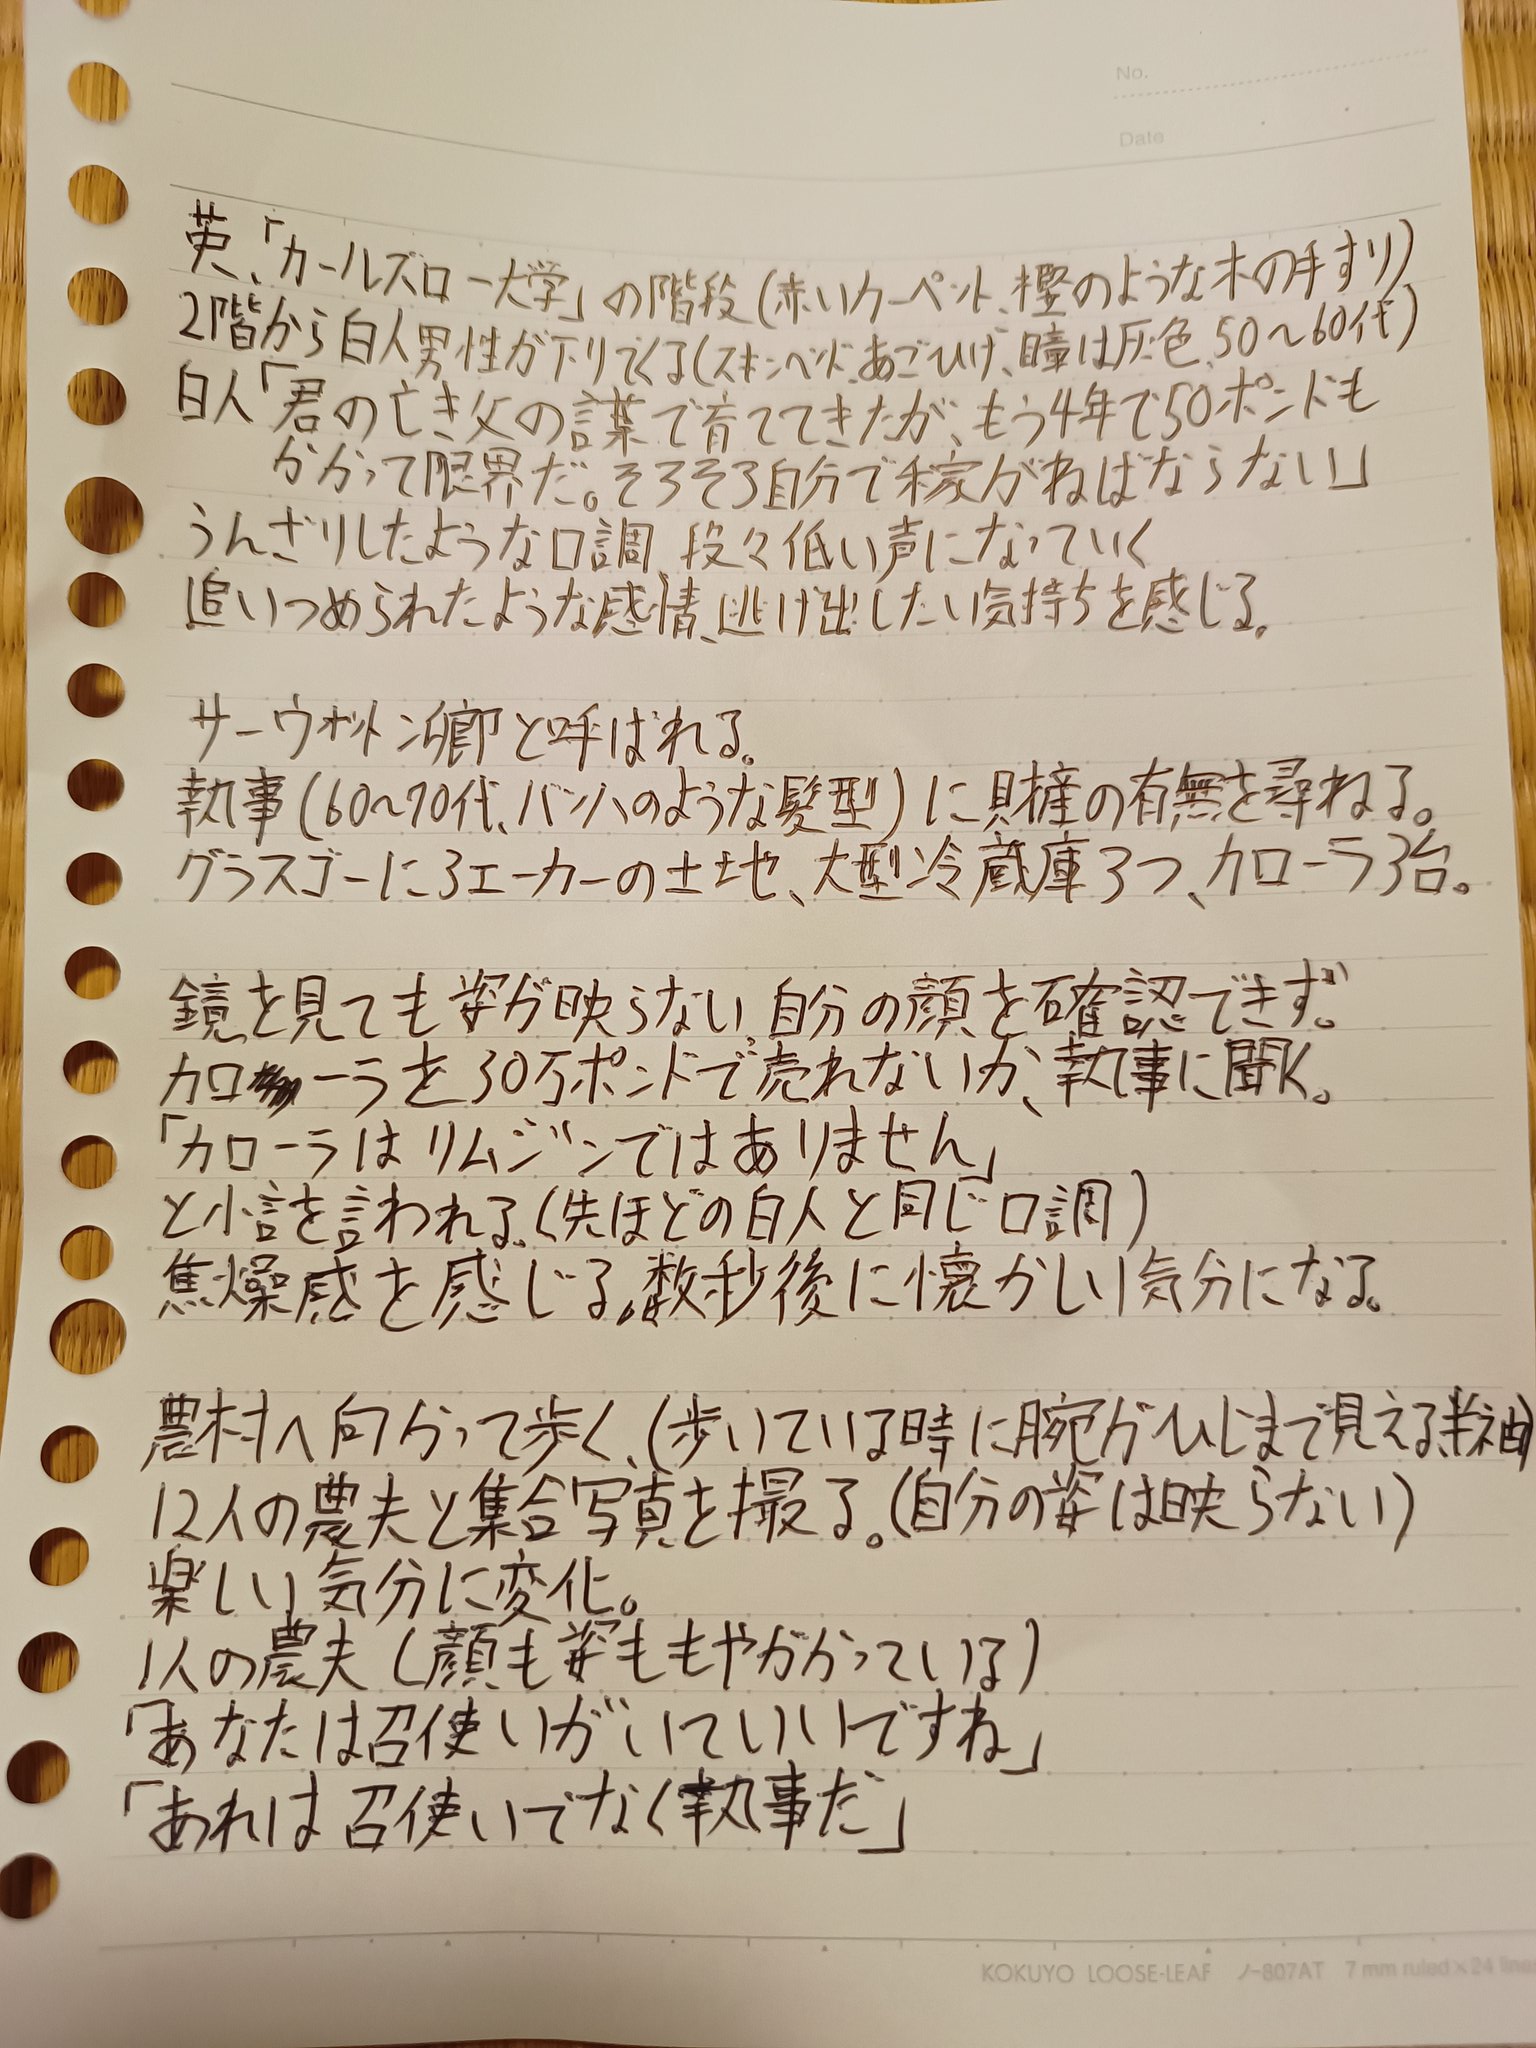 No.
Date
英、「カールズロー大学」の階段(赤いカーペット、樫のような木の手すり)
2階から白人男性が下りてくる(スキンヘッド、あごひげ、瞳は灰色、50~60代)
白人「君の亡き父の言葉で育ててきたが、もう4年で50ポンドも
かかって限界だ。そろそろ自分で稼がねばならない」
うんざりしたような口調、段々低い声になっていく
追いつめられたような感情、逃げ出したい気持ちを感じる。
サーウォットン卿と呼ばれる。
執事(60~70代、バッハのような髪型)に財産の有無を尋ねる。
グラスゴーに3エーカーの土地、大型冷蔵庫3つ、カローラ3台。
鏡を見ても姿が映らない、自分の顔を確認できず。
カローラを30万ポンドで売れないか、執事に聞く。
「カローラはリムジンではありません」
と小言を言われる。(先ほどの白人と同じ口調)
焦燥感を感じる。数秒後に懐かしい気分になる。
農村へ向かって歩く、(歩いている時に腕がひじまで見える、半袖)
12人の農夫と集合写真を撮る。(自分の姿は映らない)
楽しい気分に変化。
1人の農夫(顔も姿ももやがかっている)
「あなたは召使いがいていいですね」
「あれは召使いでなく執事だ」
KOKUYO LOOSE-LEAF ノ-807AT 7mm ruled×24 lines